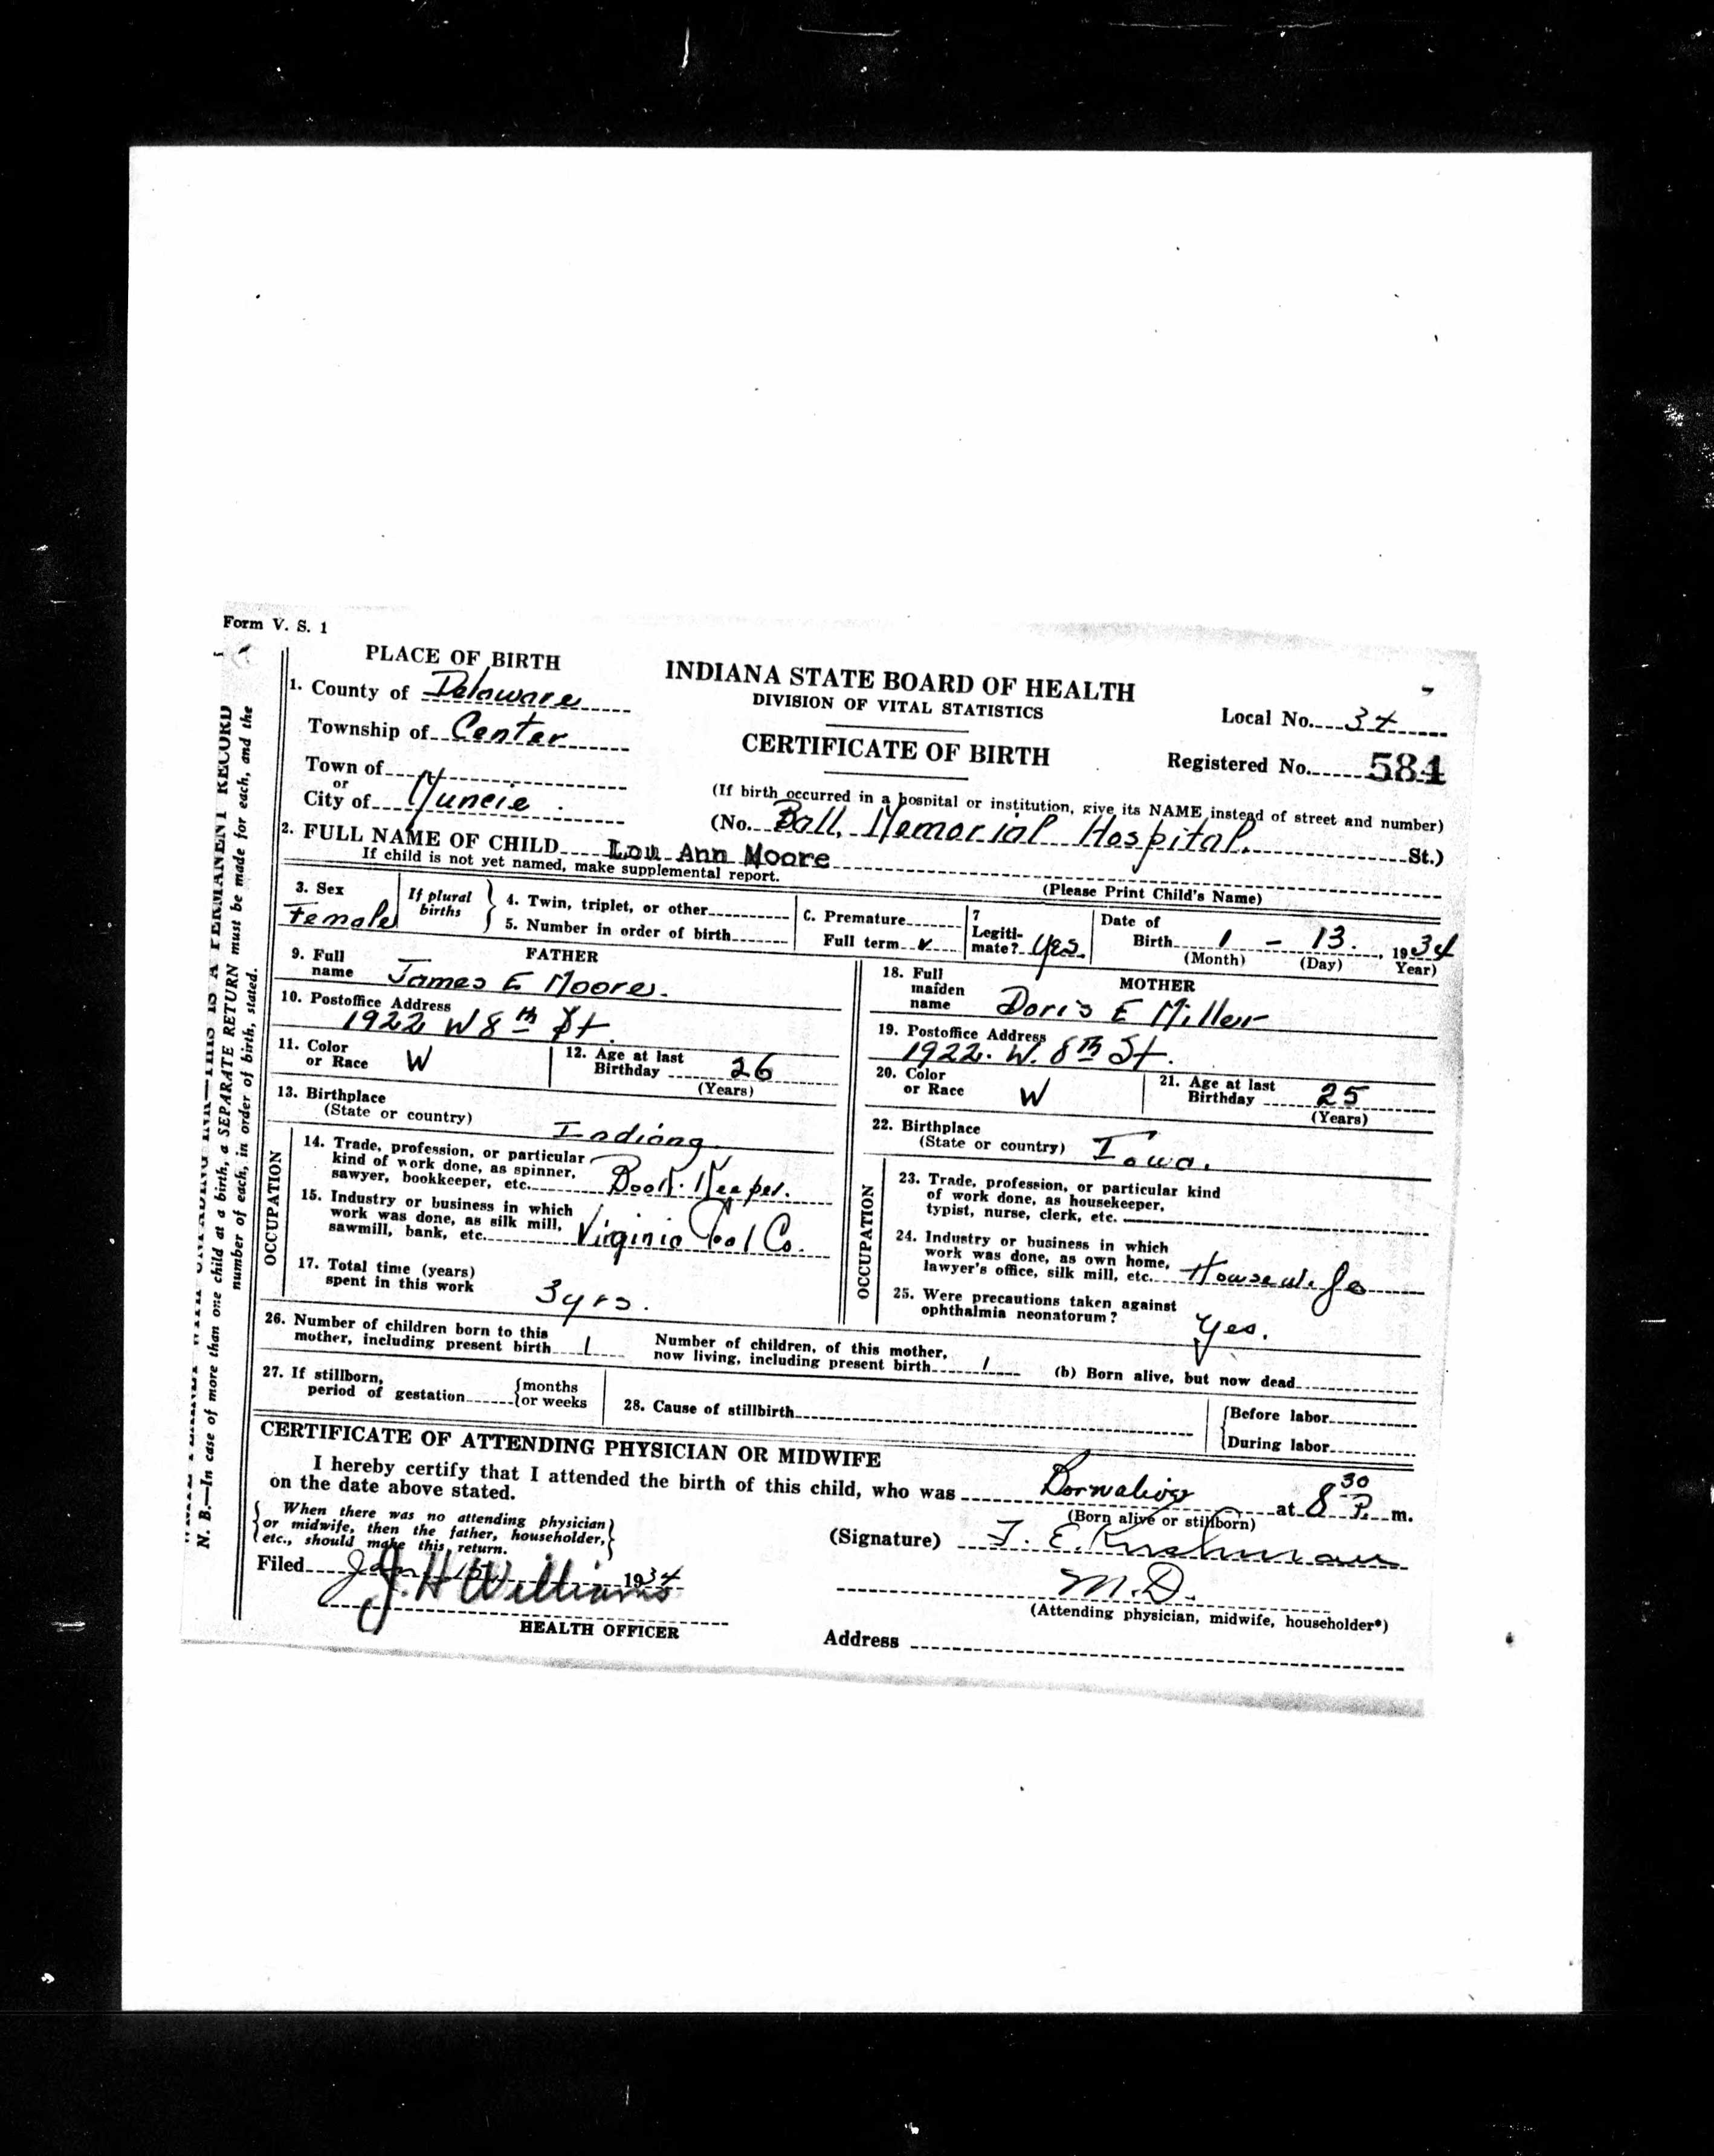 Form V. S. 1
PLACE OF BIRTH
1. County of Delaware
Township of Center
Town of
or
City of Muncie
INDIANA STATE BOARD OF HEALTH
DIVISION OF VITAL STATISTICS
CERTIFICATE OF BIRTH
Local No. 34
Registered No. 584
(If birth occurred in a hospital or institution, give its NAME instead of street and number)
(No. Ball Memorial Hospital St.)
2. FULL NAME OF CHILD Lou Ann Moore
If child is not yet named, make supplemental report.
(Please Print Child's Name)
3. Sex Female
If plural births
4. Twin, triplet, or other
5. Number in order of birth
C. Premature
Full term ✓
7 Legiti-
mate? Yes.
Date of
Birth 1 - 13, 1934
(Month) (Day) Year)
FATHER
9. Full
name James E Moore.
10. Postoffice Address
1922 W 8th St.
11. Color
or Race W
12. Age at last
Birthday 26
(Years)
13. Birthplace
(State or country) Indiana
OCCUPATION
14. Trade, profession, or particular
kind of work done, as spinner,
sawyer, bookkeeper, etc. Book-Keeper.
15. Industry or business in which
work was done, as silk mill,
sawmill, bank, etc. Virginia Co.
17. Total time (years)
spent in this work 3 yrs.
MOTHER
18. Full
maiden
name Doris E Miller
19. Postoffice Address
1922. W. 8th St.
20. Color
or Race W
21. Age at last
Birthday 25
(Years)
22. Birthplace
(State or country) Iowa.
OCCUPATION
23. Trade, profession, or particular kind
of work done, as housekeeper,
typist, nurse, clerk, etc.
24. Industry or business in which
work was done, as own home,
lawyer's office, silk mill, etc. Housewife
25. Were precautions taken against
ophthalmia neonatorum? Yes.
26. Number of children born to this
mother, including present birth 1
Number of children, of this mother,
now living, including present birth 1
(b) Born alive, but now dead
27. If stillborn,
period of gestation {months
{or weeks
28. Cause of stillbirth
{Before labor
{During labor
CERTIFICATE OF ATTENDING PHYSICIAN OR MIDWIFE
I hereby certify that I attended the birth of this child, who was Born alive at 8 30 P. m.
on the date above stated.
(Born alive or stillborn)
{ When there was no attending physician }
or midwife, then the father, householder,
{ etc., should make this return. }
(Signature) T. E. M.D.
(Attending physician, midwife, householder*)
Filed Jan 15 1934
J. H Williams
HEALTH OFFICER
Address
THIS IS A PERMANENT RECORD
N. B.—In case of more than one child at a birth, a SEPARATE RETURN must be made for each, and the
number of each, in order of birth, stated.